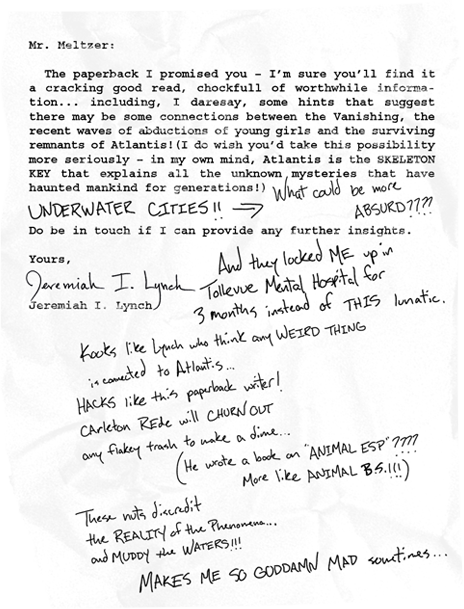 Mr. Meltzer:
The paperback I promised you – I'm sure you'll find it
a cracking good read, chockfull of worthwhile informa-
tion... including, I daresay, some hints that suggest
there may be some connections between the Vanishing, the
recent waves of abductions of young girls and the surviving
remnants of Atlantis!(I do wish you'd take this possibility
more seriously – in my own mind, Atlantis is the SKELETON
KEY that explains all the unknown mysteries that have
haunted mankind for generations!)
What could be more
ABSURD????
UNDERWATER CITIES!! →
Do be in touch if I can provide any further insights.
Yours,
Jeremiah I. Lynch
Jeremiah I. Lynch
And they locked ME up in
Tollevue Mental Hospital for
3 months instead of THIS lunatic.
Kooks like Lynch who think any WEIRD THING
is connected to Atlantis...
HACKS like this paperback writer!
Carleton REde will CHURN OUT
any flakey trash to make a dime...
(He wrote a book on "ANIMAL ESP"????
More like ANIMAL B.S.!!!)
These nuts discredit
the REALITY of the Phenomena...
and MUDDY the WATERS!!!
MAKES ME SO GODDAMN MAD sometimes...